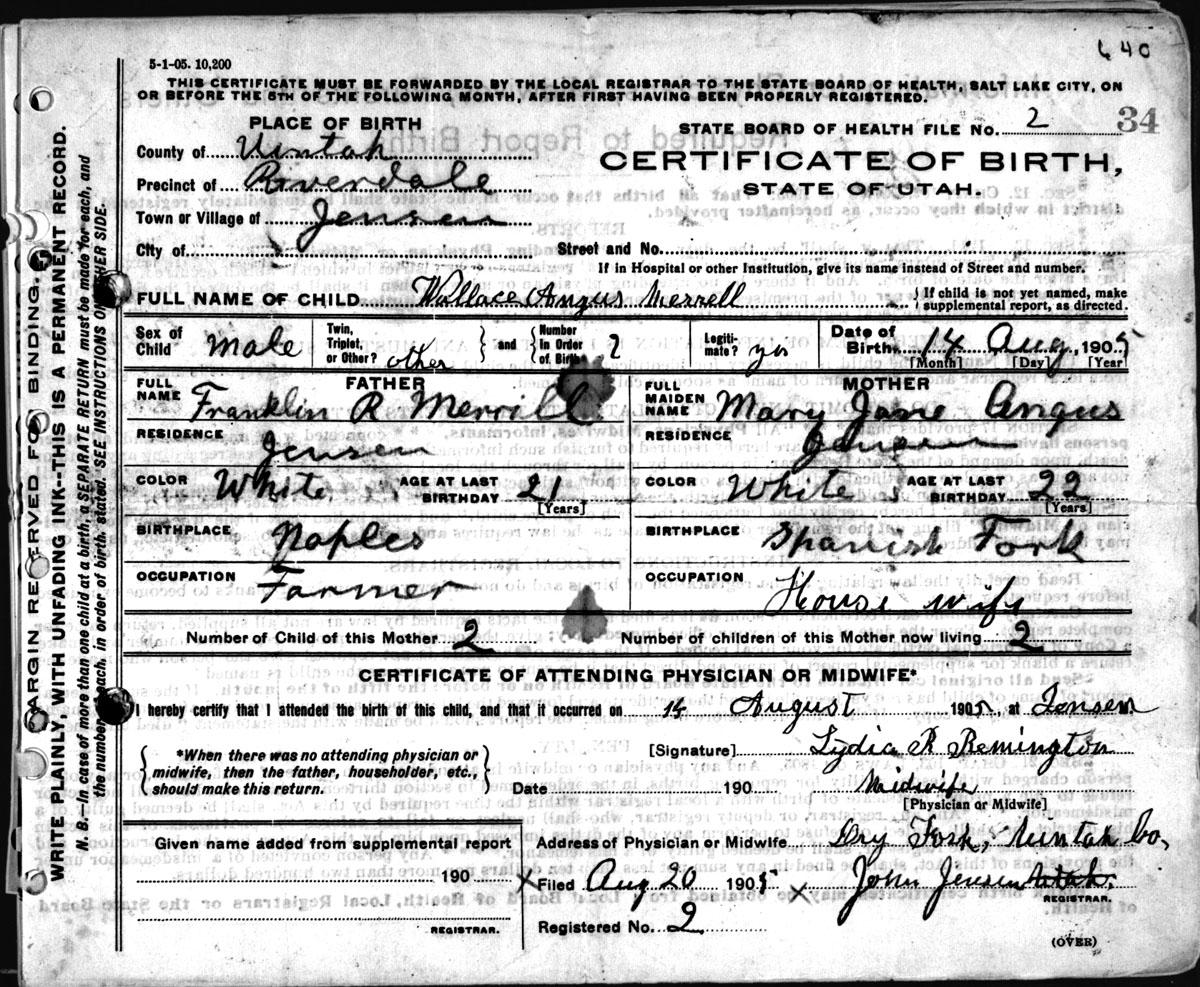 640
5-1-05. 10,200
THIS CERTIFICATE MUST BE FORWARDED BY THE LOCAL REGISTRAR TO THE STATE BOARD OF HEALTH, SALT LAKE CITY, ON
OR BEFORE THE 5TH OF THE FOLLOWING MONTH, AFTER FIRST HAVING BEEN PROPERLY REGISTERED.
PLACE OF BIRTH
STATE BOARD OF HEALTH FILE No. 2 34
County of Uintah
CERTIFICATE OF BIRTH,
Precinct of Riverdale
STATE OF UTAH.
Town or Village of Jensen
City of
Street and No.
If in Hospital or other Institution, give its name instead of Street and number.
FULL NAME OF CHILD Wallace Angus Merrell { If child is not yet named, make supplemental report, as directed.
Sex of Child Male Twin, Triplet, or Other? other } and { Number in Order of Birth 2 Legiti-mate? yes Date of Birth 14 Aug, 1905
[Month] [Day] [Year]
FATHER MOTHER
FULL NAME Franklin R Merrill FULL MAIDEN NAME Mary Jane Angus
RESIDENCE Jensen RESIDENCE Jensen
COLOR White AGE AT LAST BIRTHDAY 21 [Years] COLOR White AGE AT LAST BIRTHDAY 22 [Years]
BIRTHPLACE Naples BIRTHPLACE Spanish Fork
OCCUPATION Farmer OCCUPATION House wife
Number of Child of this Mother 2 Number of children of this Mother now living 2
CERTIFICATE OF ATTENDING PHYSICIAN OR MIDWIFE*
I hereby certify that I attended the birth of this child, and that it occurred on 14 August 1905 at Jensen
{ *When there was no attending physician or midwife, then the father, householder, etc., should make this return. }
[Signature] Lydia R Remington
Date 190 Midwife
[Physician or Midwife]
Given name added from supplemental report
Address of Physician or Midwife Dry Fork, Uintah Co,
190
Filed Aug 20 1905 John Jensen
REGISTRAR.
REGISTRAR.
Registered No. 2
(OVER)
MARGIN RESERVED FOR BINDING.
WRITE PLAINLY, WITH UNFADING INK--THIS IS A PERMANENT RECORD.
N. B.--In case of more than one child at a birth, a SEPARATE RETURN must be made for each, and
the number of each, in order of birth, stated. SEE INSTRUCTIONS ON OTHER SIDE.